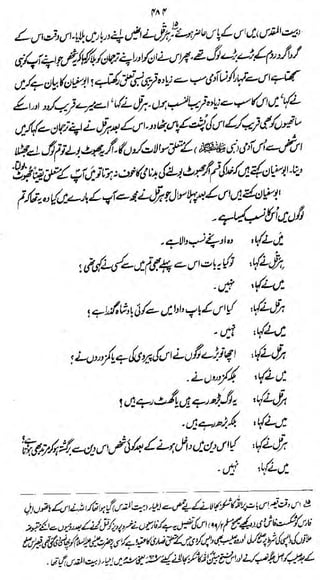 ۴۸۴
(بیت المقدس) میں اس کے پاس حاضر ہوئے ہرقل نے انھیں اپنے دربار میں بلایا۔ اس وقت اس کے
گرداگرد روم کے بڑے بڑے لوگ تھے، پھر اس نے ان کو اور اپنے ترجمان کو بلا کر کہا کہ یہ شخص جو اپنے آپ کو نبی
سمجھتا ہے اس سے تمہارا کونسا آدمی سب سے زیادہ قریبی نسبی تعلق رکھتا ہے؟ ابوسفیان کا بیان ہے کہ میں
نے کہا: میں اس کا سب سے زیادہ قریب النسب ہوں۔ ہرقل نے کہا، اسے میرے قریب کر دو اور اس کے
ساتھیوں کو بھی قریب کر کے اس کی پشت کے پاس بٹھا دو۔ اس کے بعد ہرقل نے اپنے ترجمان سے کہا کہ میں
اس شخص سے اُس آدمی (نبی ﷺ) کے متعلق سوالات کروں گا۔ اگر یہ جھوٹ بولے تو تم لوگ اسے جھٹلا
دینا۔ ابوسفیان کہتے ہیں کہ خدا کی قسم اگر جھوٹ بولنے کی بدنامی کا خوف نہ ہوتا تو میں آپ کے متعلق یقیناً جھوٹ بولتا
ابوسفیان کہتے ہیں اس کے بعد پہلا سوال جو ہرقل نے مجھ سے آپ کے بارے میں کیا وہ یہ تھا کہ تم
لوگوں میں اُس کا نسب کیسا ہے۔
میں نے کہا: وہ اونچے نسب والا ہے۔
ہرقل نے کہا: تو کیا یہ بات اس سے پہلے بھی تم میں سے کسی نے کہی تھی؟
میں نے کہا: نہیں۔
ہرقل نے کہا: کیا اس کے باپ دادا میں سے کوئی بادشاہ گذرا ہے؟
میں نے کہا: نہیں۔
ہرقل نے کہا: اچھا تو بڑے لوگوں نے اس کی پیروی کی ہے یا کمزوروں نے؟
میں نے کہا: بلکہ کمزوروں نے۔
ہرقل نے کہا: یہ لوگ بڑھ رہے ہیں یا گھٹ رہے ہیں؟
میں نے کہا: بلکہ بڑھ رہے ہیں۔
ہرقل نے کہا: کیا اس دین میں داخل ہونے کے بعد کوئی شخص اس دین سے برگشتہ ہو کر مرتد بھی ہوتا ہے؟
میں نے کہا: نہیں۔